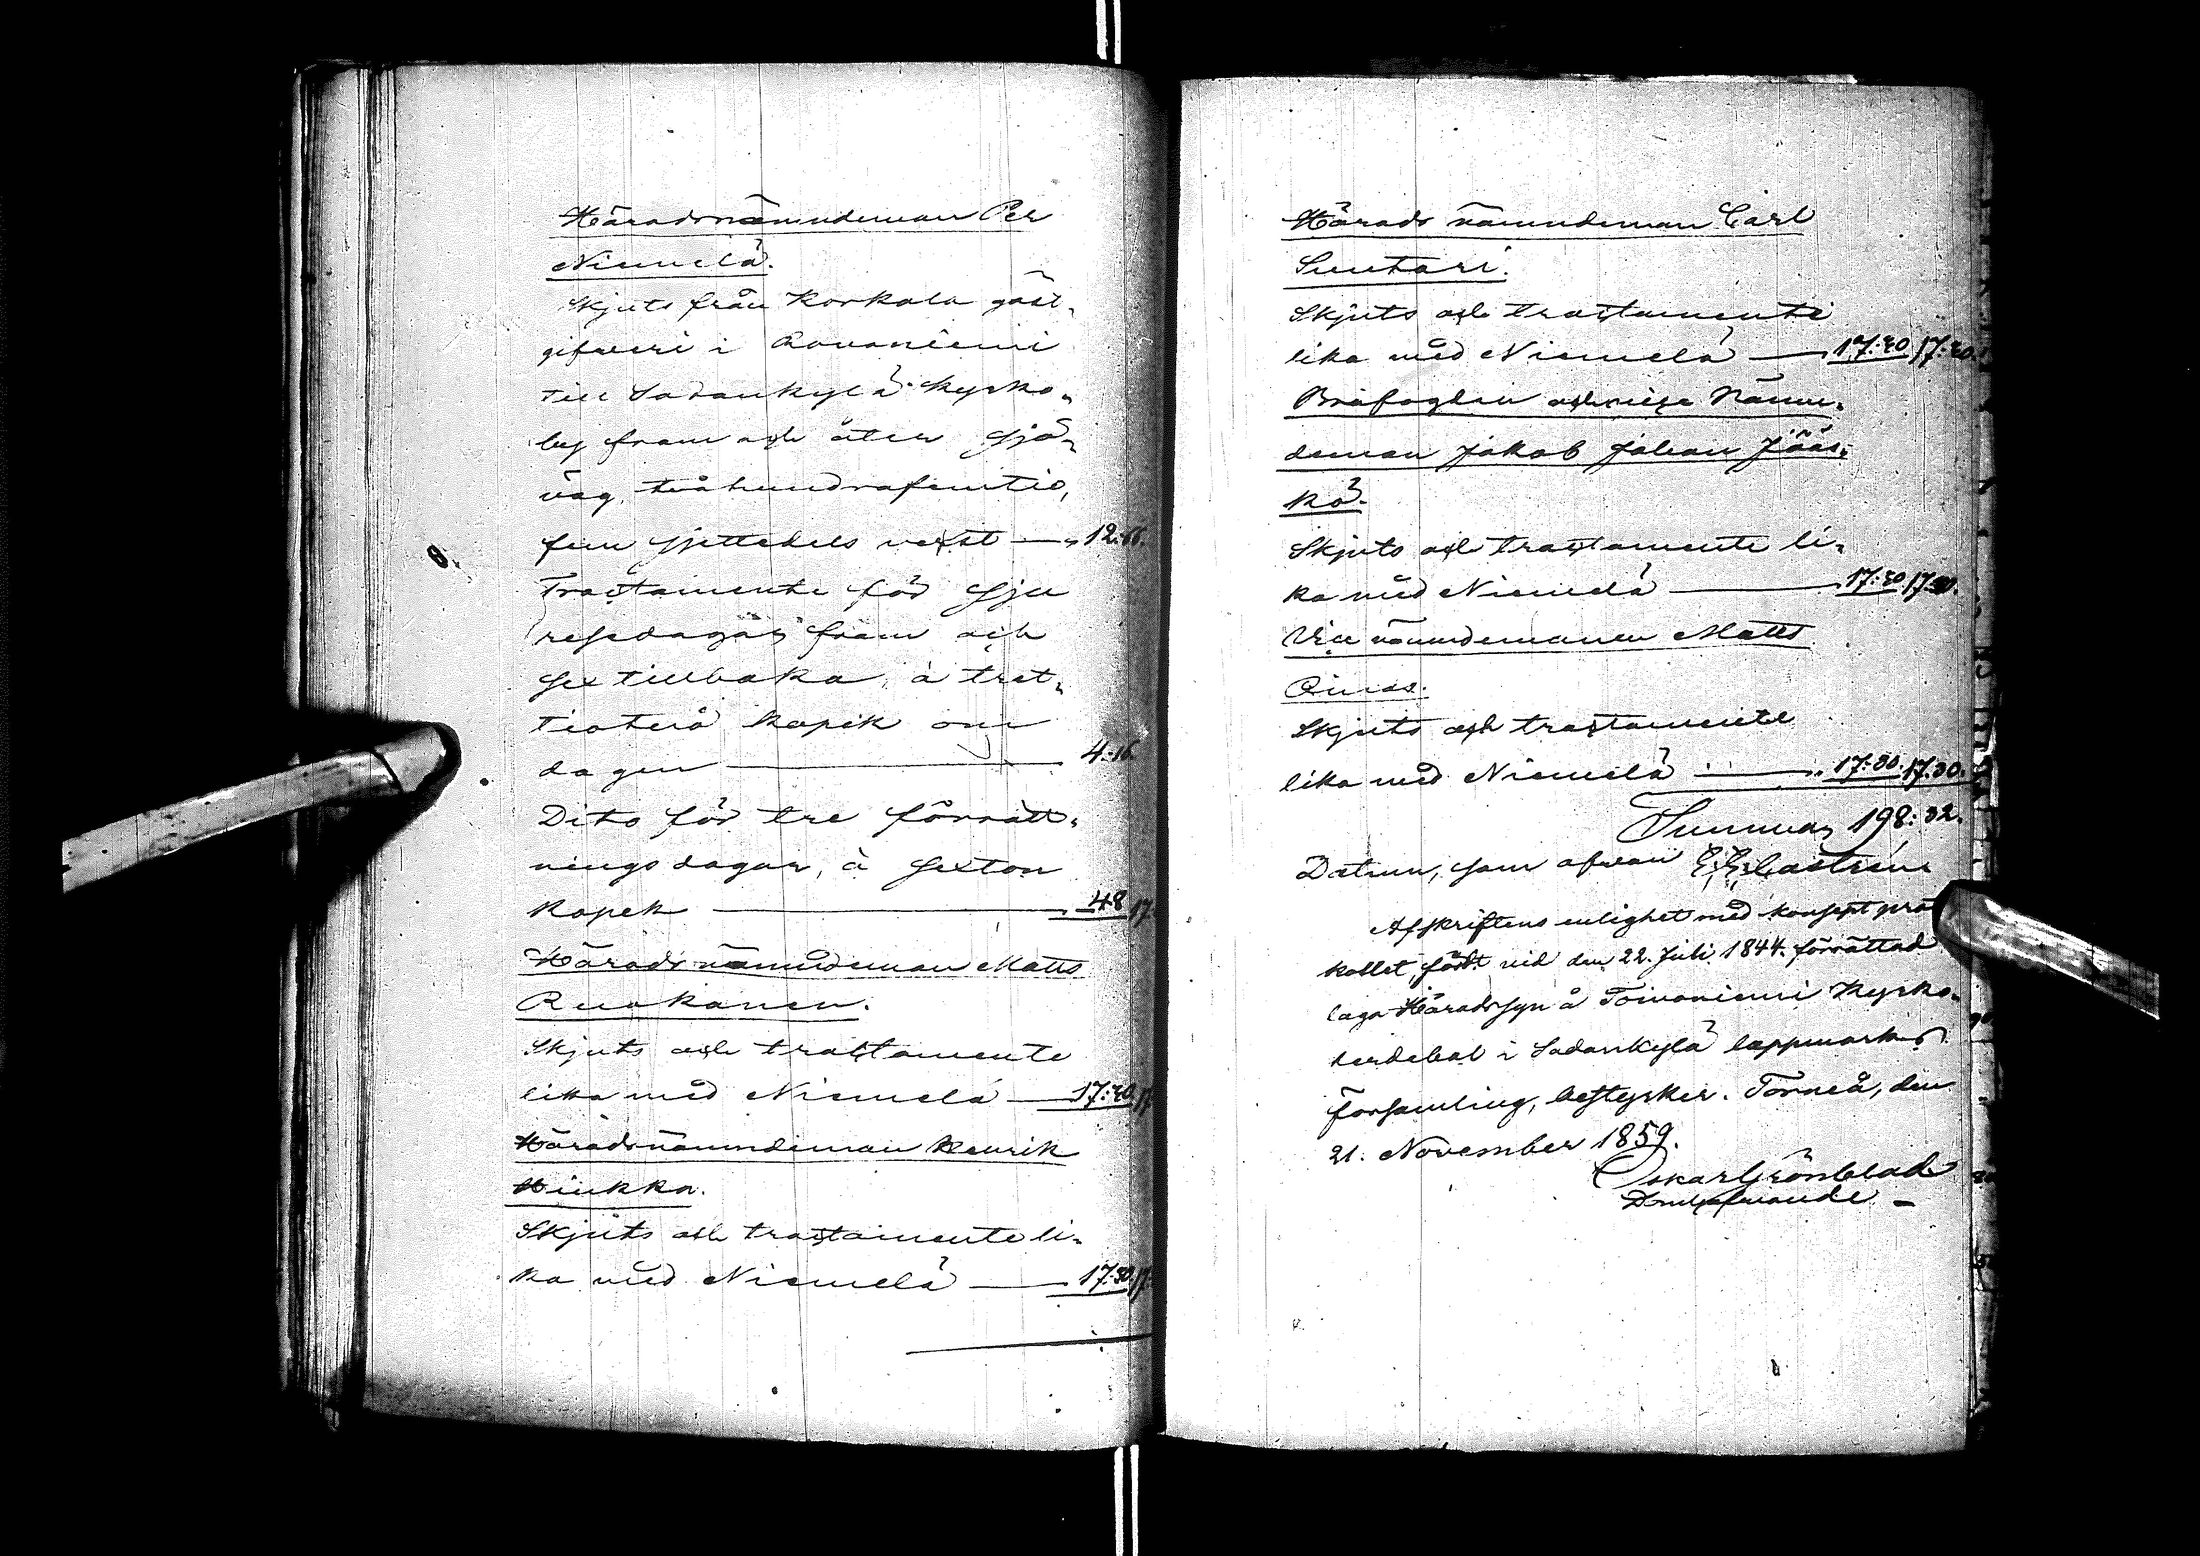 Häradsnämndeman Per
Niemelä.
Skjuts från Korkala gäst-
gifveri i Rovaniemi
till Sodankylä kyrko-
by fram och åter sjö-
väg, tvåhundrafemtio,
fem sjettedels verst — 12:66.
Tractamente för sju
resedagar fram och
sex tillbaka, à tret-
tiotvå kopek om
dagen — 4:16
Dito för tre förrätt-
nings dagar, à sexton
kopek — 48 17.
Häradsnämndeman Matts
Ruokanen.
Skjuts och tractamente
lika med Niemelä — 17:30 17.
Häradsnämndeman Henrik
Hiukka.
Skjuts och tractamente li-
ka med Niemelä — 17:30. 17.
Härads nämndeman Carl
Suutari.
Skjuts och tractamente
lika med Niemelä — 17:30 17:30.
Bröfogden och vice Näm-
deman Jakob Johan Jääs-
kö.
Skjuts och tractamente li-
ka med Niemelä — 17:30 17:30.
Vice nämndemannen Matts
Skjuts och tractamente
lika med Niemelä — 17:30. 17:30.
Summa, 198:32.
Datum, som ofvan E. E. Castrén
Afskriftens enlighet med konsept pro
kollet, fördt vid den 22. Juli 1844. förrättad
laga Häradssyn å Toivoniemi Kyrko-
herdebol i Sodankylä lappmarks
församling, bestyrker. Torneå, den
21. November 1859.
Oskar Grönblad
Domhafvande